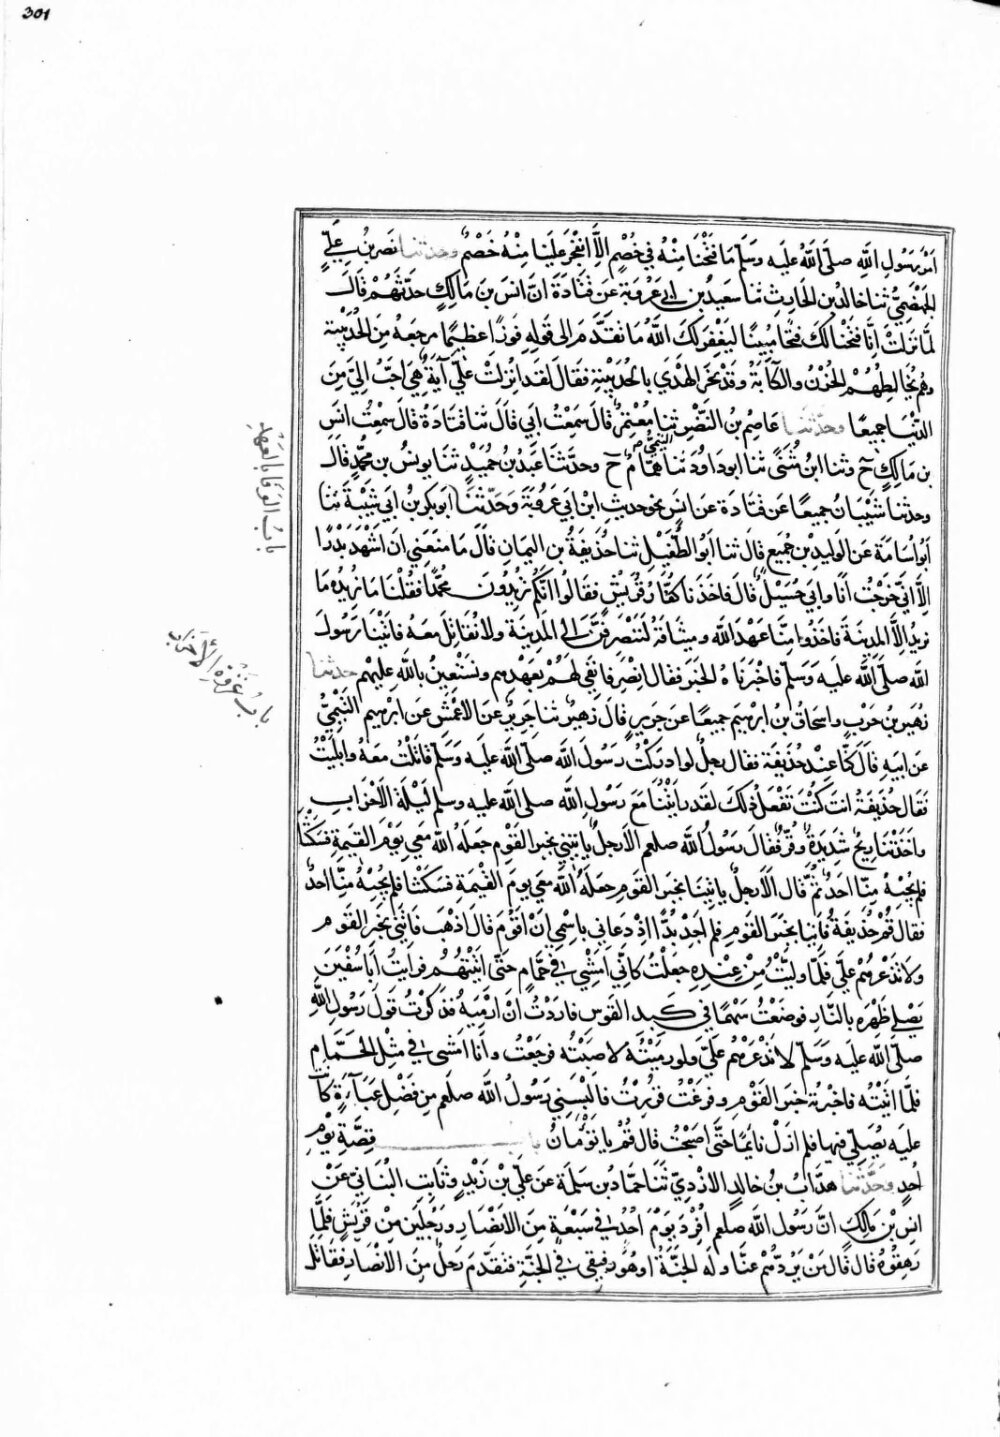 301
امر رسول الله صلى الله عليه وسلم ما فتحنا منه في خصم الا انفجر علينا منه خصم وحدثنا نصر بن علي
الجهضمي ثنا خالد بن الحارث ثنا سعيد بن ابي عروبة عن قتادة ان انس بن مالك حدثهم قال
لما نزلت انا فتحنا لك فتحا مبينا ليغفر لك الله ما تقدم الى قوله فوزا عظيما مرجعه من الحديبية
وهم يخالطهم الحزن والكآبة وقد نحر الهدي بالحديبية فقال لقد انزلت علي آية هي احب الي من
الدنيا جميعا وحدثنا عاصم بن النضر التيمي ثنا معتمر قال سمعت ابي قال ثنا قتادة قال سمعت انس
بن مالك ح وثنا ابن مثنى ثنا ابو داود ثنا همام ح وحدثنا عبد بن حميد ثنا يونس بن محمد قال
وحدثنا شيبان جميعا عن قتادة عن انس نحو حديث ابن ابي عروبة وحدثنا ابو بكر بن ابي شيبة ثنا
ابو اسامة عن الوليد بن جميع قال ثنا ابو الطفيل ثنا حذيفة بن اليمان قال ما منعني ان اشهد بدرا
الا اني خرجت انا وابي حسيل قال فاخذنا كفار قريش فقالوا انكم تريدون محمدا فقلنا ما نريده ما
نريد الا المدينة فاخذوا منا عهد الله وميثاقه لننصرفن الى المدينة ولا نقاتل معه فاتينا رسول
الله صلى الله عليه وسلم فاخبرناه الخبر فقال انصرفا نفي لهم بعهدهم ونستعين بالله عليهم حدثنا
زهير بن حرب واسحاق بن ابرهيم جميعا عن جرير قال زهير ثنا جرير عن الاعمش عن ابرهيم التيمي
عن ابيه قال كنا عند حذيفة فقال رجل لو ادركت رسول الله صلى الله عليه وسلم قاتلت معه وابليت
فقال حذيفة انت كنت تفعل ذلك لقد رايتنا مع رسول الله صلى الله عليه وسلم ليلة الاحزاب
واخذتنا ريح شديدة وقر فقال رسول الله صلعم الا رجل ياتيني بخبر القوم جعله الله معي يوم القيمة فسكتنا
فلم يجبه منا احد ثم قال الا رجل ياتينا بخبر القوم جعله الله معي يوم القيمة فسكتنا فلم يجبه منا احد
فقال قم حذيفة فاتنا بخبر القوم فلم اجد بدا اذ دعاني باسمي ان اقوم قال اذهب فاتني بخبر القوم
ولا تذعرهم علي فلما وليت من عنده جعلت كاني امشي في حمام حتى اتيتهم فرايت ابا سفين
يصلي ظهره بالنار فوضعت سهما في كبد القوس فاردت ان ارميه فذكرت قول رسول الله
صلى الله عليه وسلم لا تذعرهم علي ولو رميته لاصبته فرجعت وانا امشي في مثل الحمام
فلما اتيته فاخبرته خبر القوم وفرغت قررت فالبسني رسول الله صلعم من فضل عباءة كانت
عليه يصلي فيها فلم ازل نائما حتى اصبحت قال قم يا نومان باب قصة يوم
احد وحدثنا هداب بن خالد الازدي ثنا حماد بن سلمة عن علي بن زيد وثابت البناني عن
انس بن مالك ان رسول الله صلعم افرد يوم احد في سبعة من الانصار ورجلين من قريش فلما
رهقوه قال قال من يردهم عنا وله الجنة او هو رفيقي في الجنة فتقدم رجل من الانصار فقاتل
باب الوفا بالعهد
باب غزوة الأحزاب